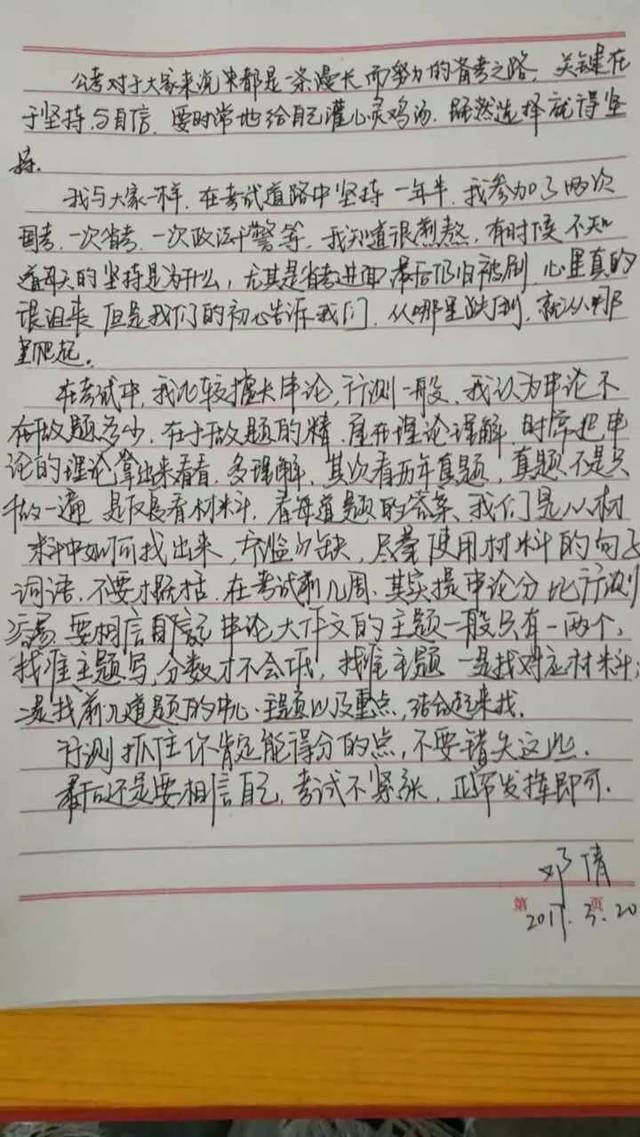 公考对于大家来说都是一条漫长而努力的备考之路，关键在
于坚持与自信，要时常地给自己灌心灵鸡汤，既然选择就得坚
持。
我与大家一样，在考试道路中坚持一年半，我参加了两次
国考，一次省考，一次政法干警等，我知道很煎熬，有时候不知
道每天的坚持是为什么，尤其是省考进面最后仍旧被刷，心里真的
很沮丧，但是我们的初心告诉我们，从哪里跌倒，就从哪
里爬起。
在考试中，我比较擅长申论，行测一般，我认为申论不
在做题多少，在于做题的精，尾在理论理解，时常把申
论的理论拿出来看看，多理解，其次看历年真题，真题不是只
做一遍，是反复看材料，看每道题的答案，我们是从材
料中如何找出来，尽量使用材料的句子
词语，不要概括，在考试前几周，其实提申论分比行测
容易，要相信自己，申论大作文的主题一般只有一两个，
找准主题写，分数才不会低，找准主题一是找对应材料；
二是找前几道题的中心、主题以及重点，结合起来找。
行测抓住你肯定能得分的点，不要错失这些。
最后还是要相信自己，考试不紧张，正常发挥即可。
邓倩
第 页
2017.3.20